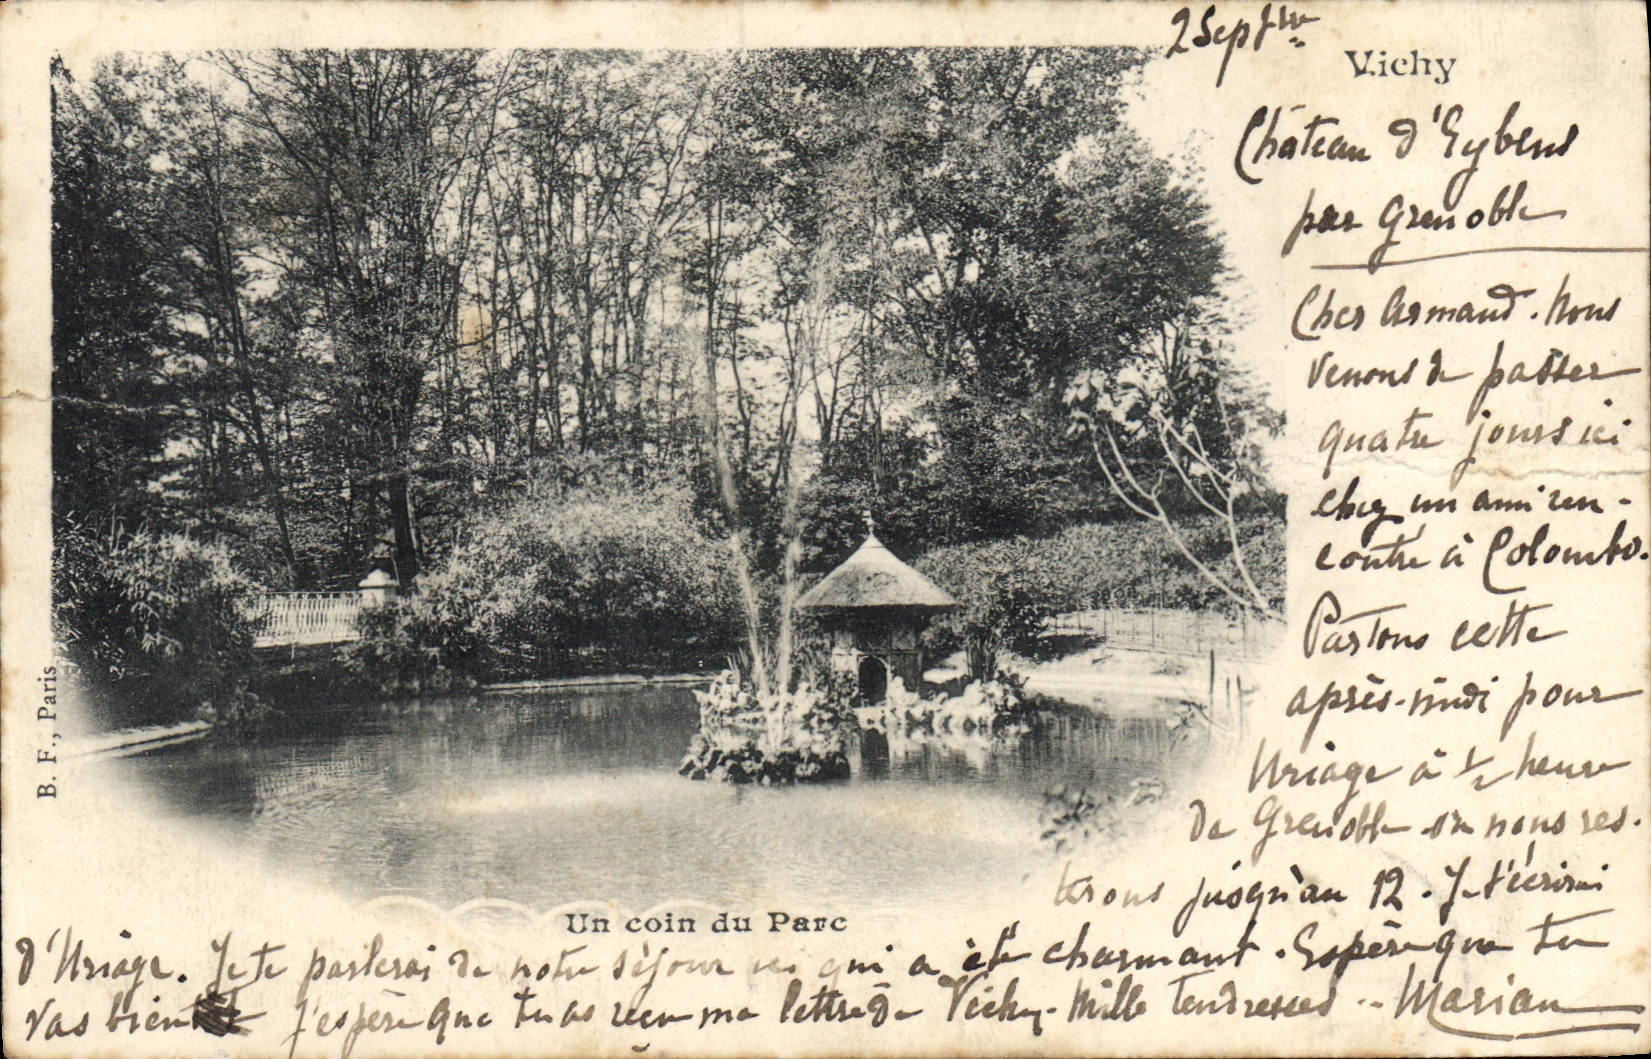 2 Sept bre
Vichy
Château d'Eybens
par Grenoble
Cher Armand. Nous
venons de passer
quatre jours ici
chez un ami ren-
contré à Colombo.
Partons cette
après-midi pour
Uriage à 1/2 heure
de Grenoble où nous res-
terons jusqu'au 12. Je t'écrirai
B. F., Paris
Un coin du Parc
d'Uriage. Je te parlerai de notre séjour ici qui a été charmant. Espère que tu
vas bien j'espère que tu as reçu ma lettre de Vichy. Mille tendresses -- Marian